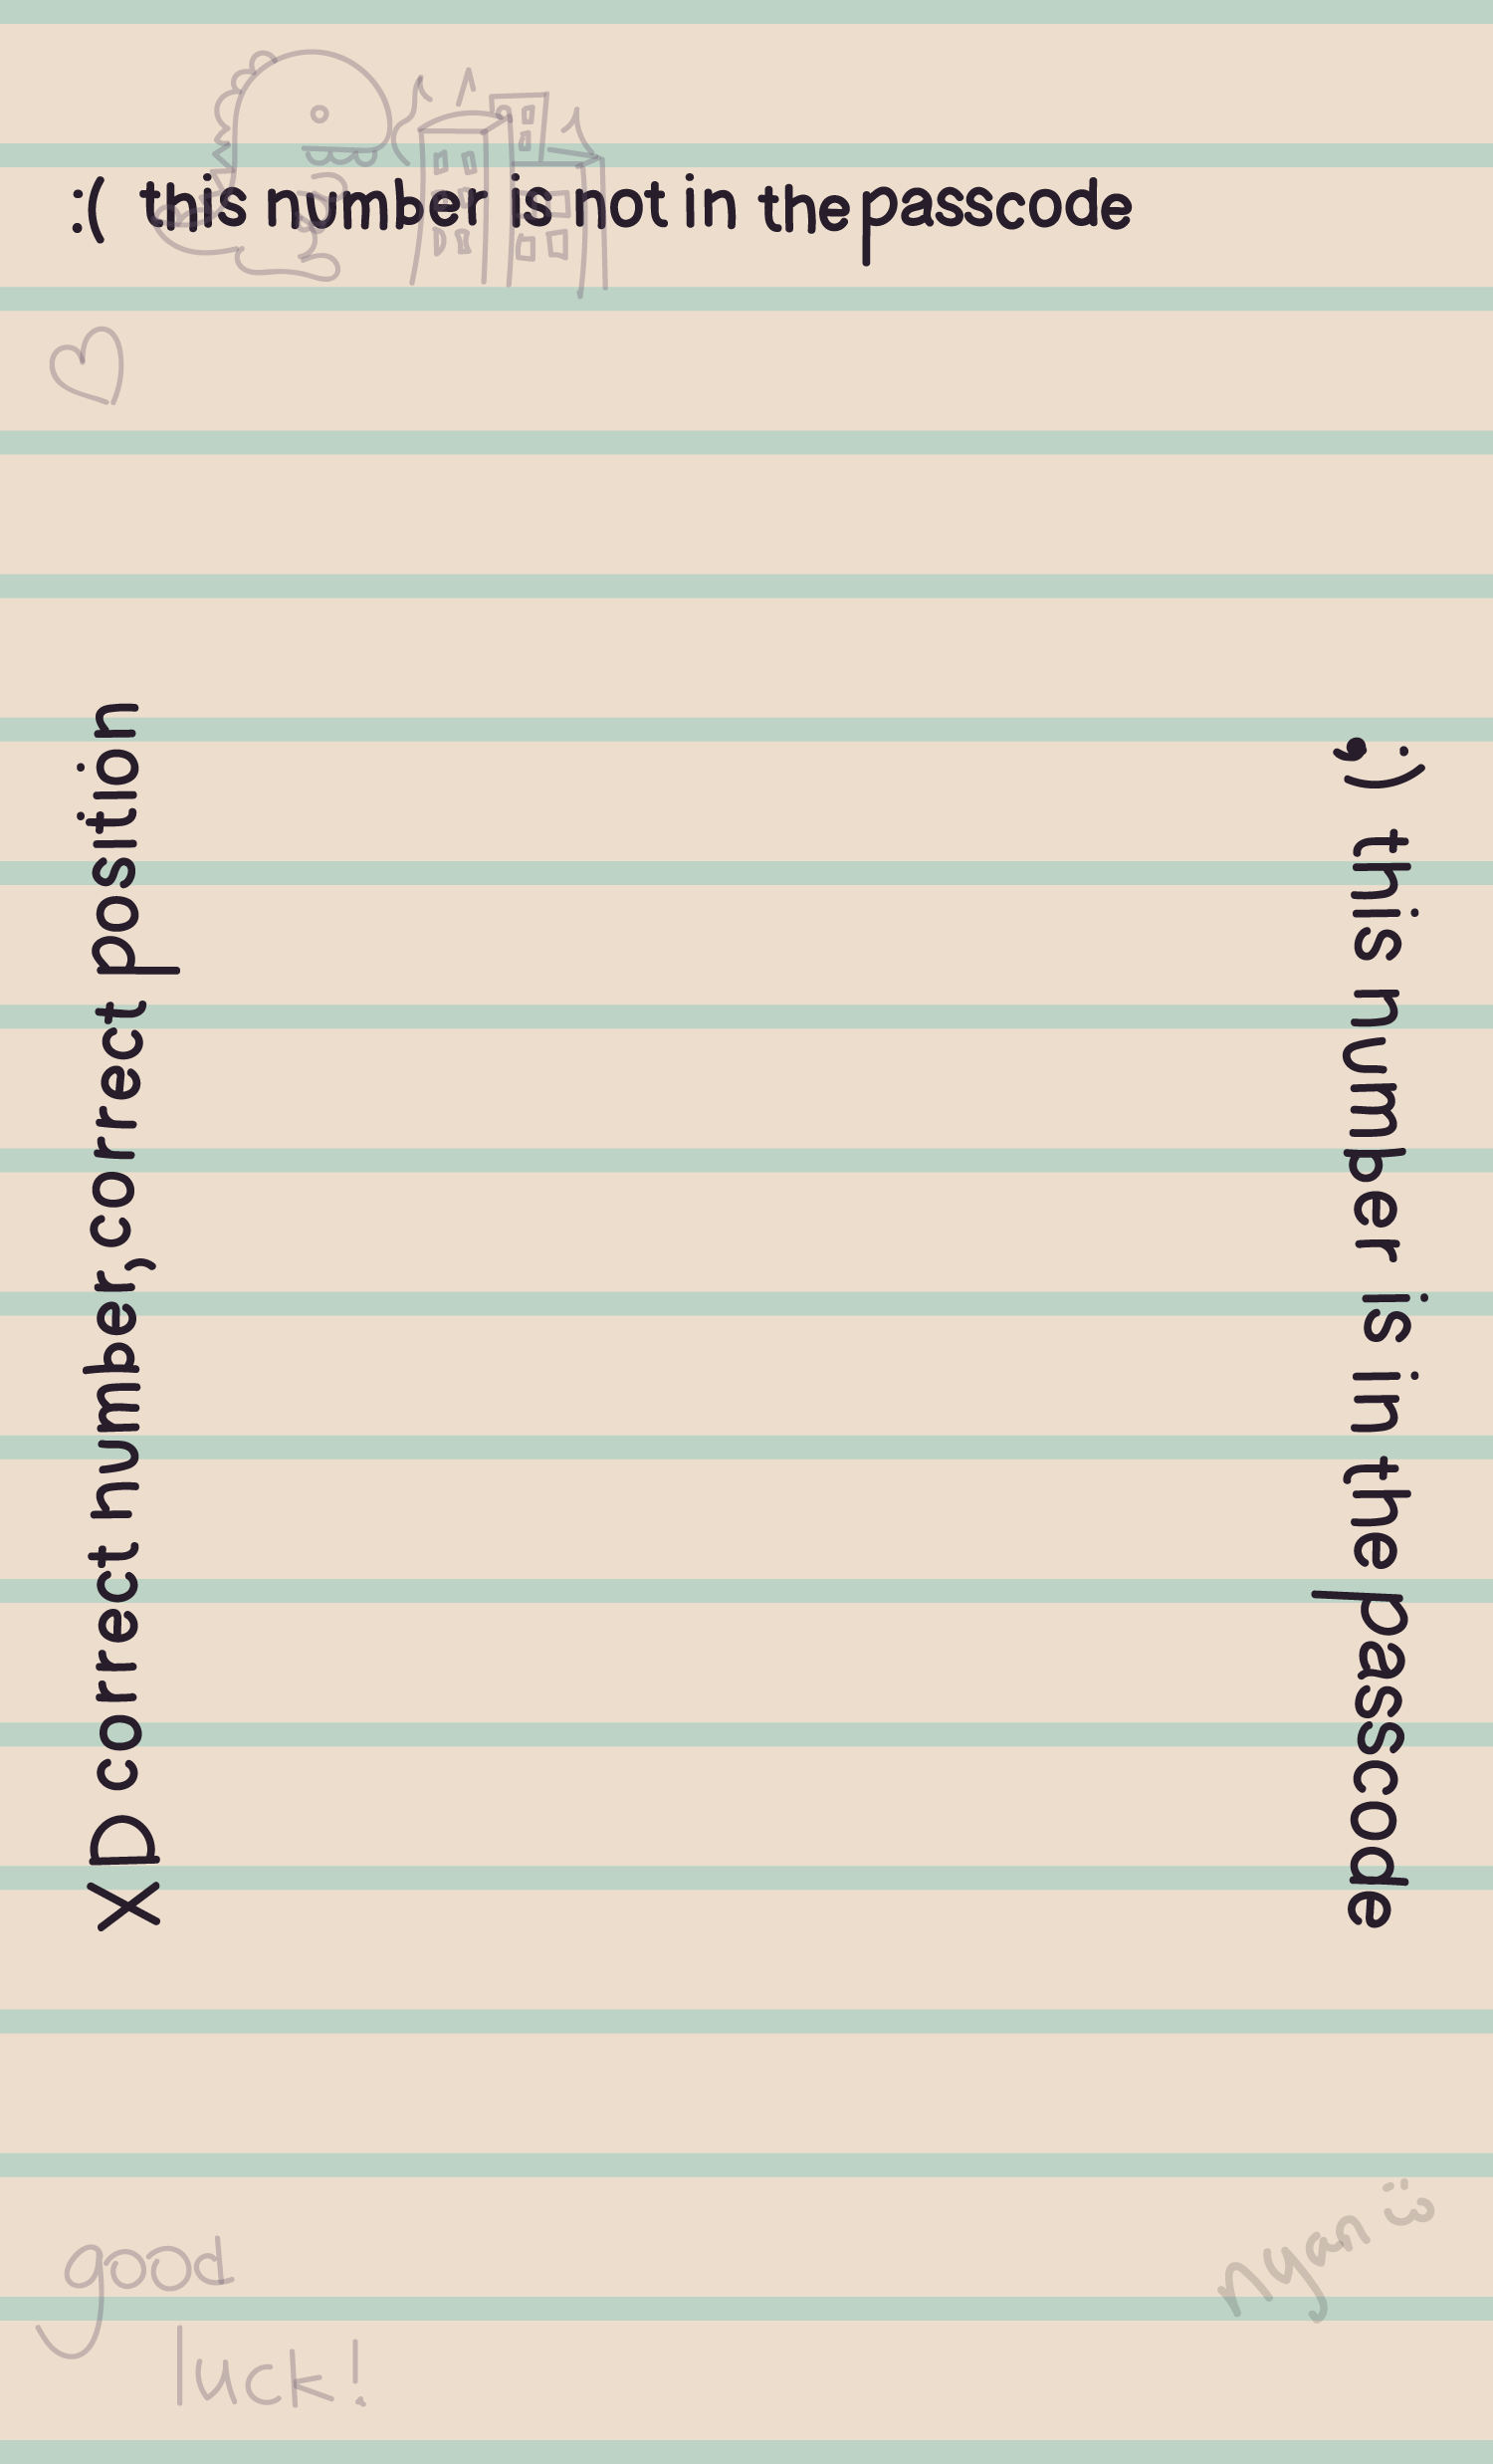 :( this number is not in the passcode
XD correct number, correct position
;) this number is in the passcode
nyan :3
good
luck!